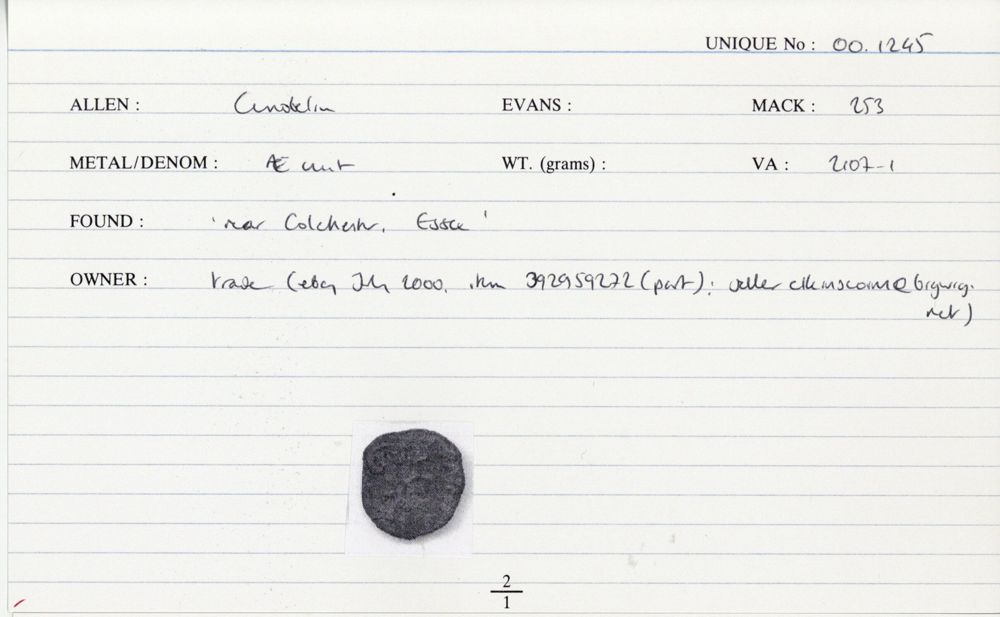 UNIQUE No : 00.1245
ALLEN : Cunobelin EVANS : MACK : 253
METAL/DENOM : Æ unit WT. (grams) : VA : 2107-1
FOUND : 'near Colchester, Essex'
OWNER : trade (eBay July 2000, item 392959272 (part); seller
net)
2
1